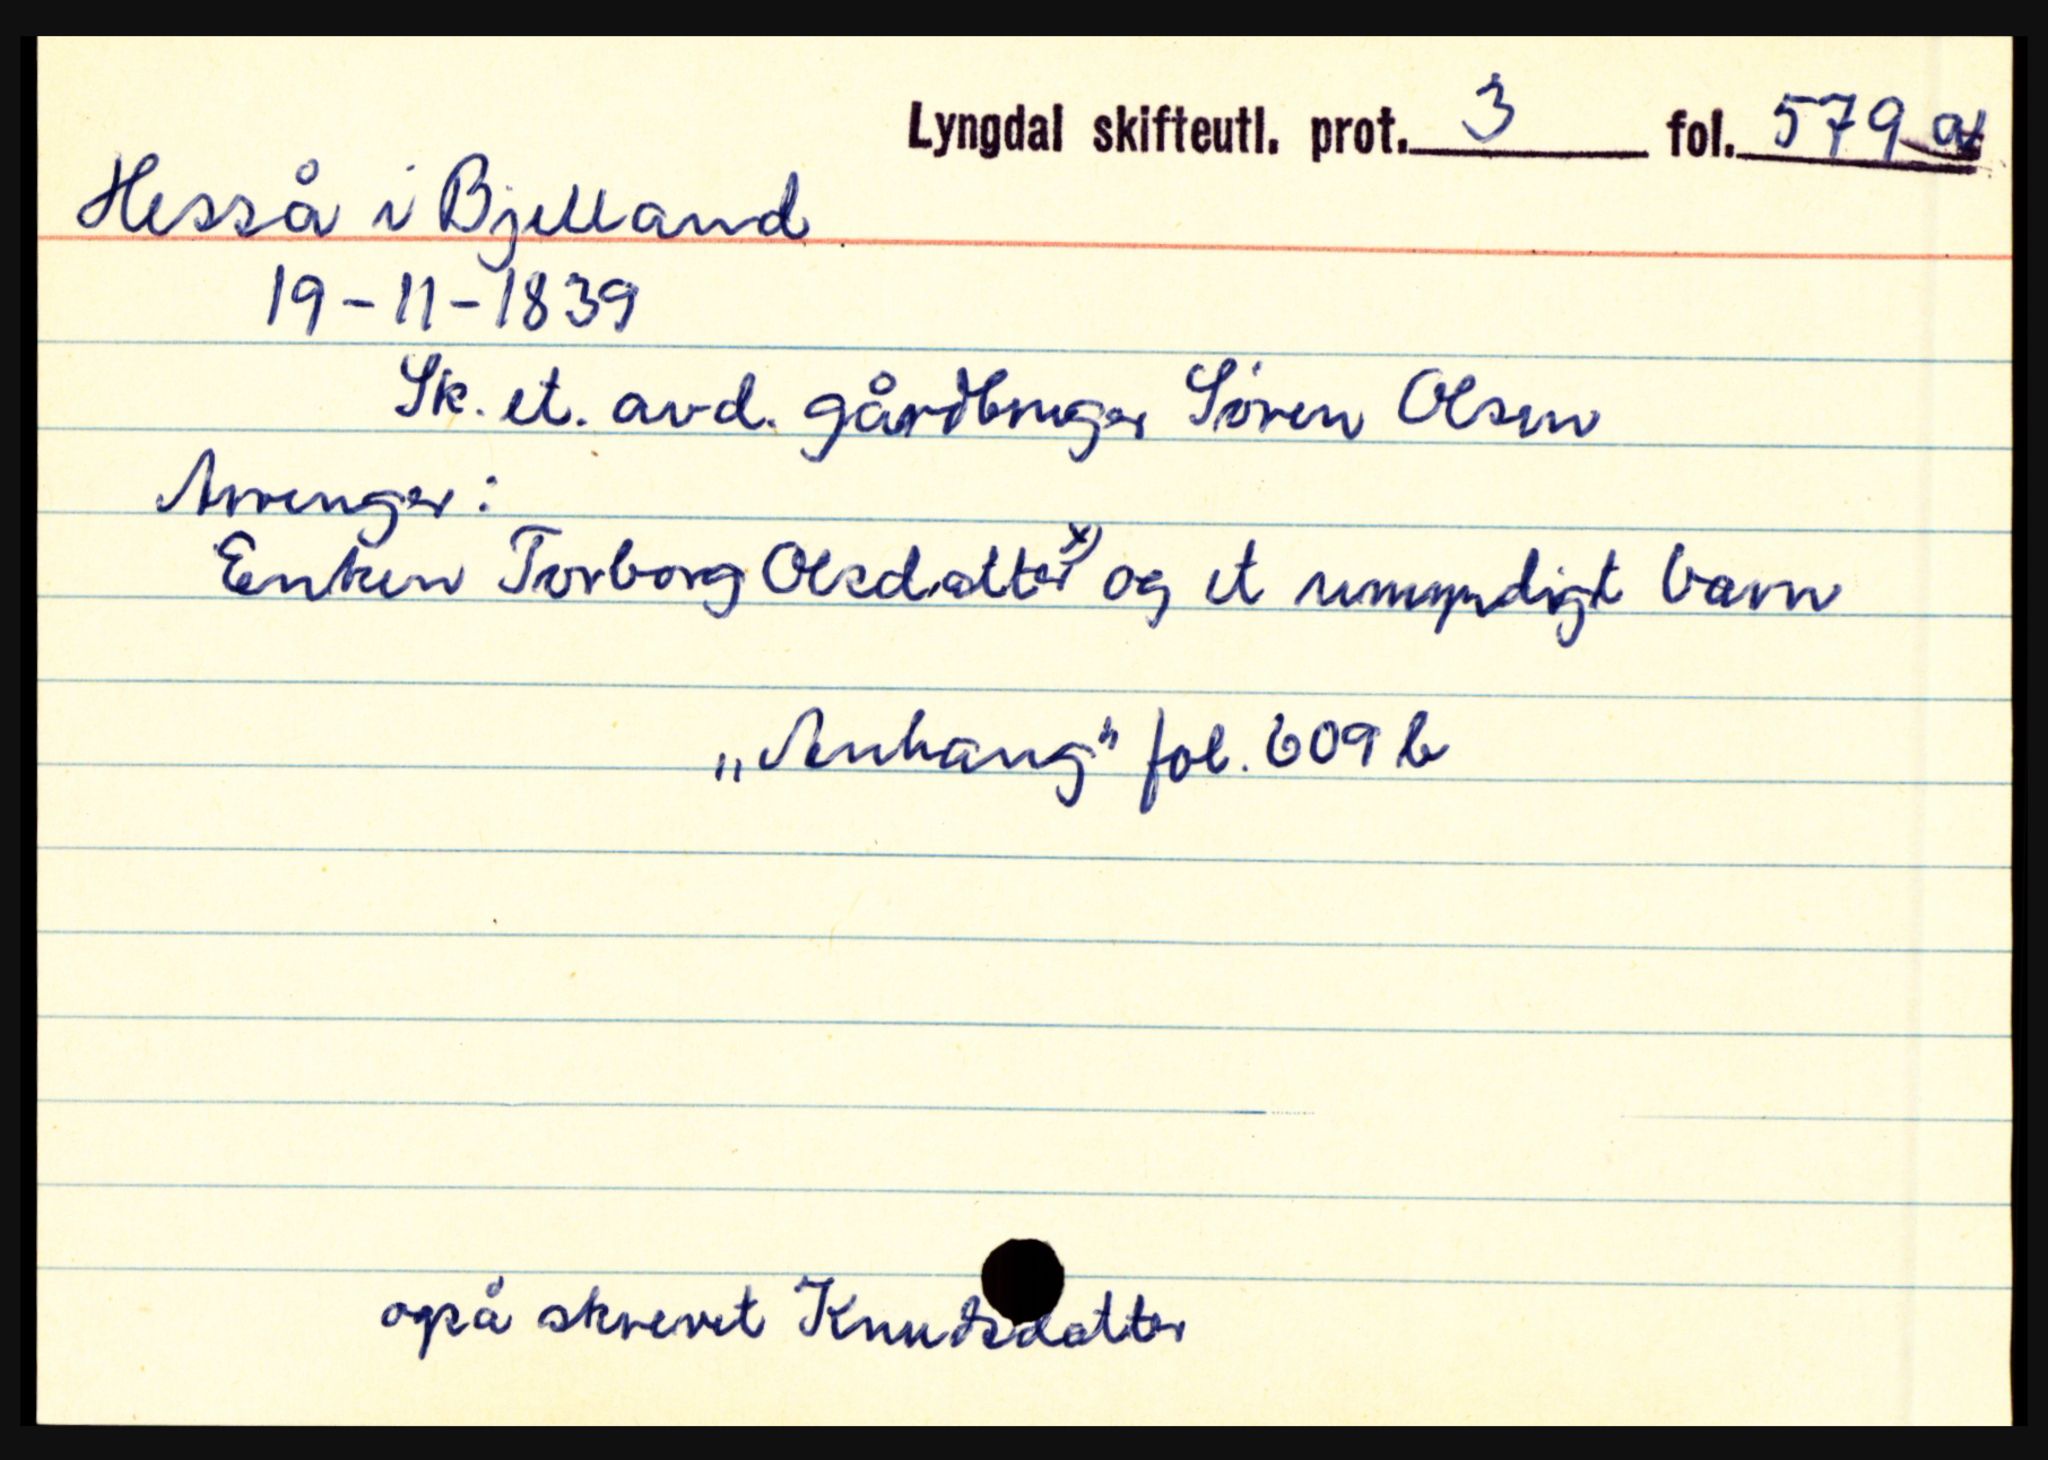 Lyngdal skifteutl. prot. 3 fol. 579 a
Hesså i Bjelland
19-11-1839
Sk. et. avd. gårdbruger Søren Olsen
Arvenger:
Enken Torborg Olsdatter x) og et umyndigt barn
„Anhang" fol. 609 b
også skrevet Knudsdatter